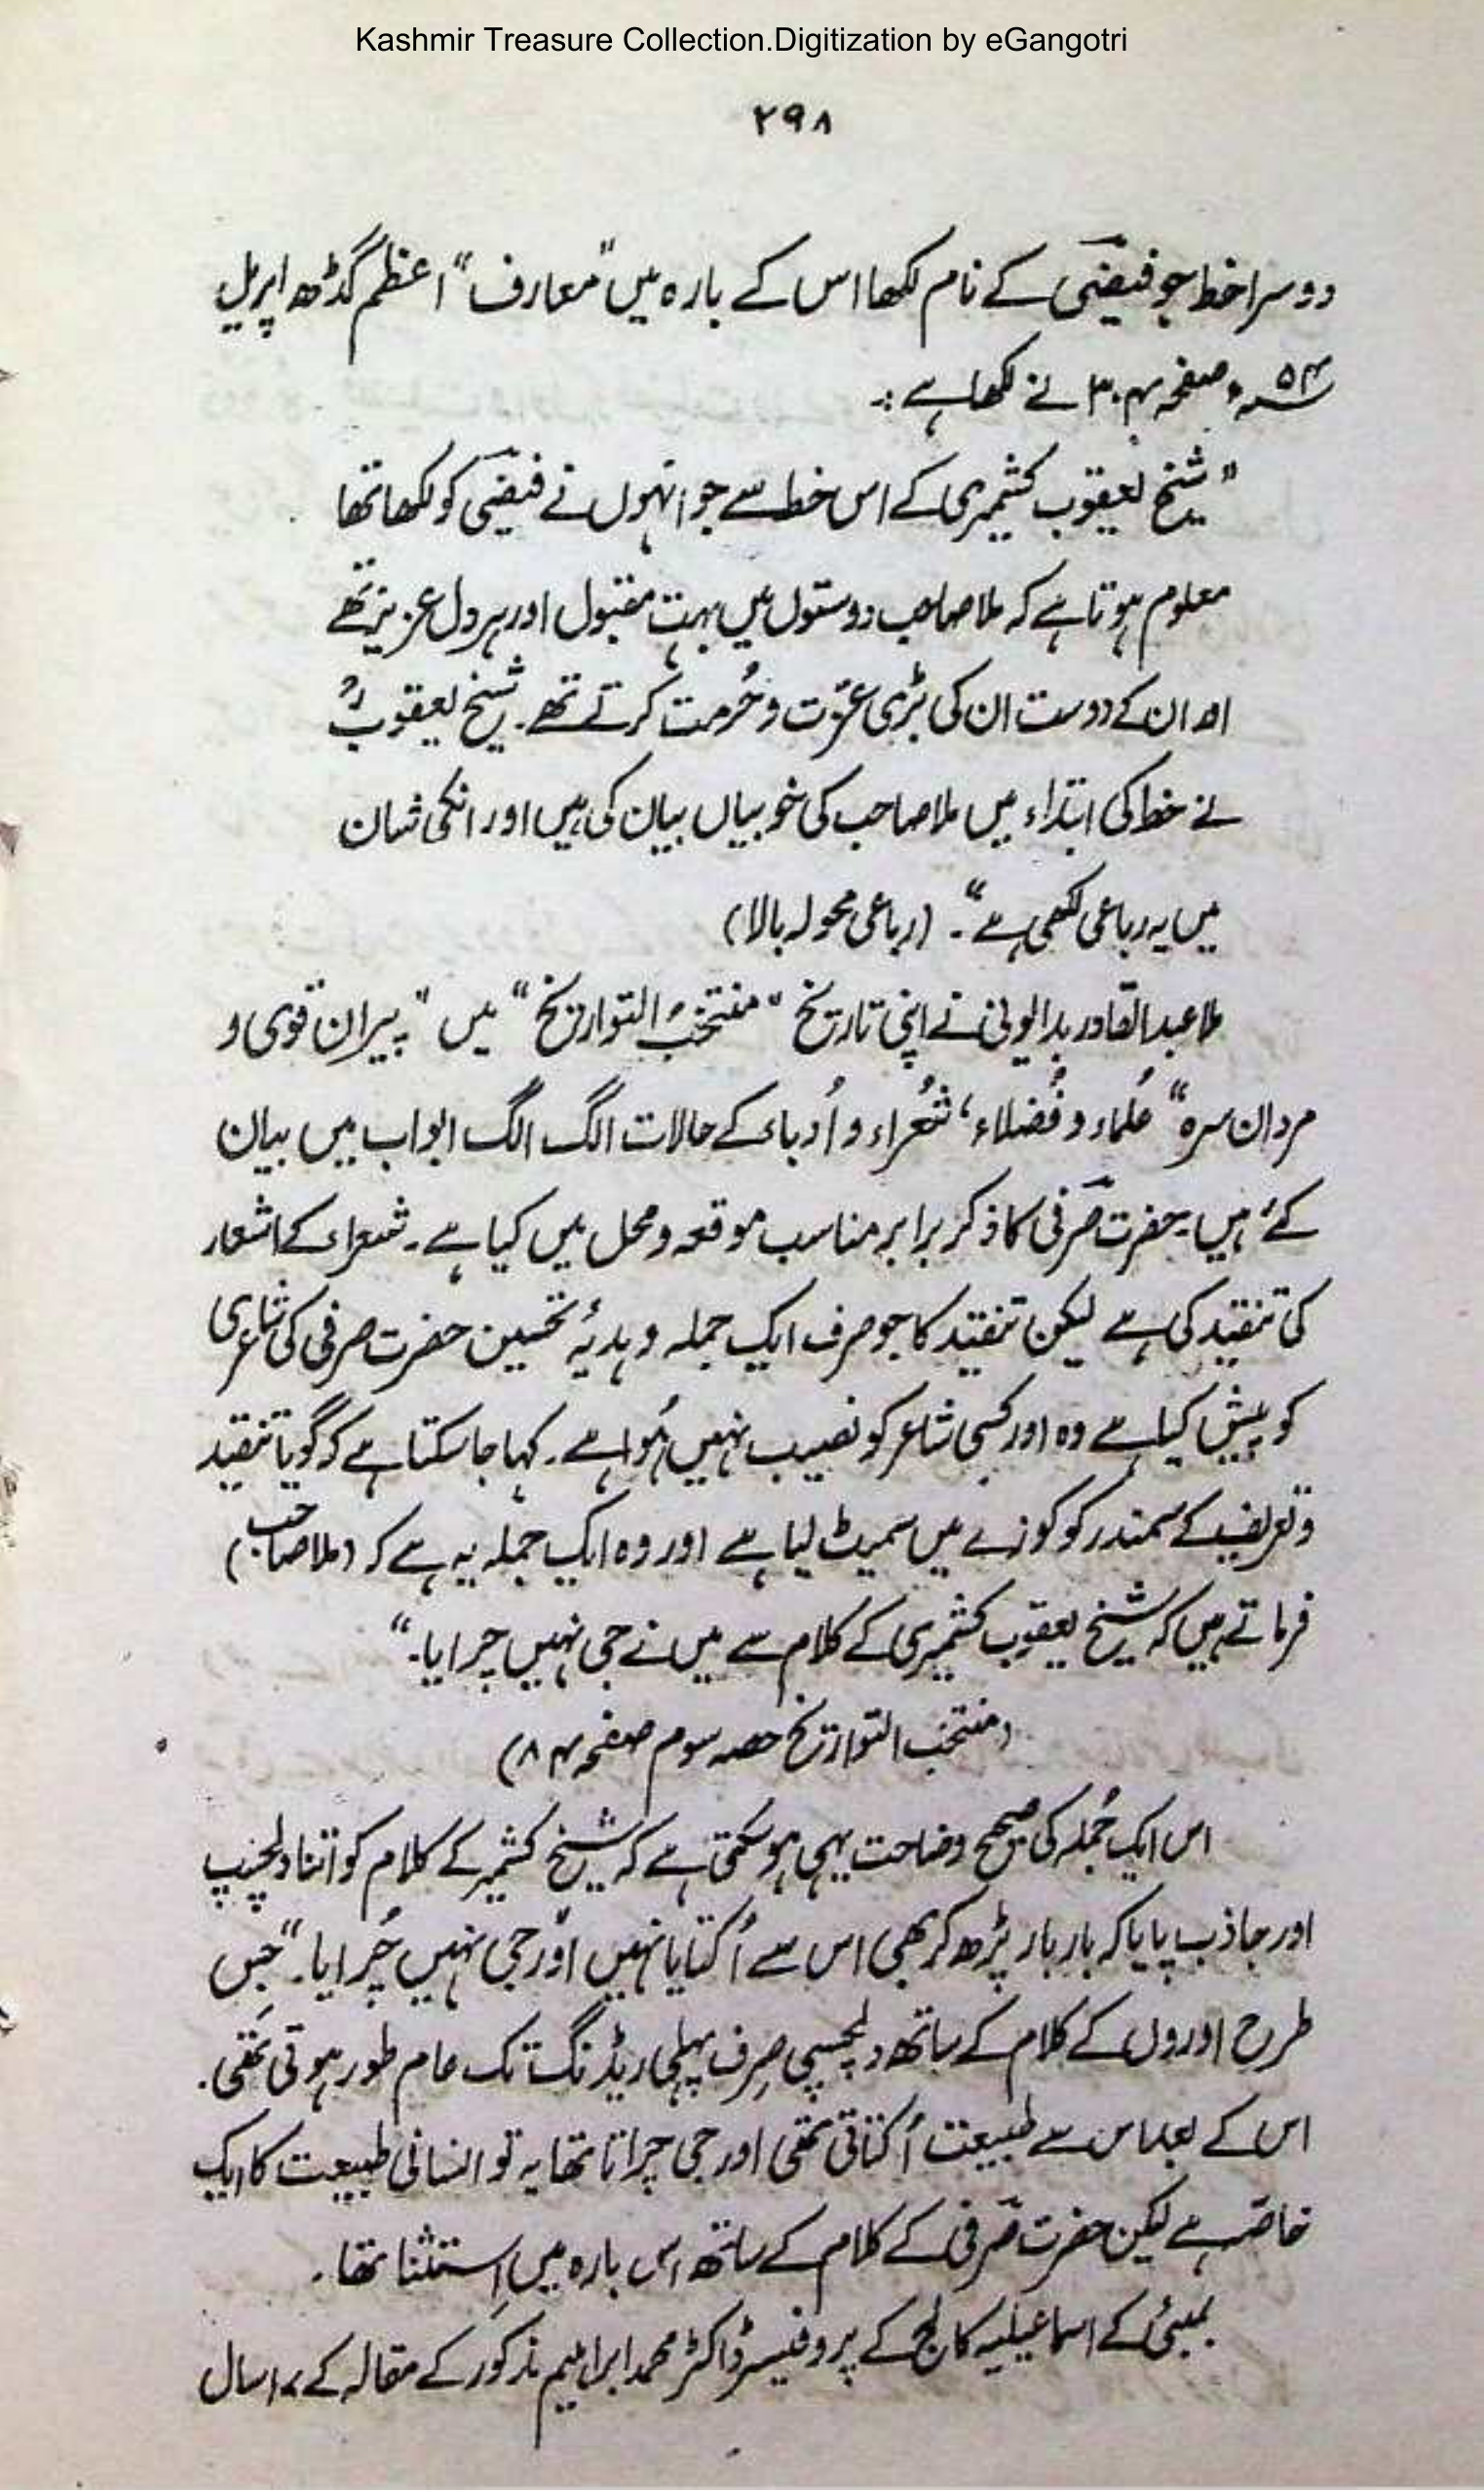 Kashmir Treasure Collection.Digitization by eGangotri
۲۹۸
دوسرا خط جو فیضیؔ کے نام لکھا اس کے بارہ میں "معارف" اعظم گڈھ اپریل
۵۴ء صفحہ ۳۰۴ نے لکھا ہے :۔
"شیخ یعقوب کشمیری کے اس خط سے جو انہوں نے فیضیؔ کو لکھا تھا
معلوم ہوتا ہے کہ ملا صاحب دوستوں میں بہت مقبول اور ہر دل عزیز تھے
اور ان کے دوست ان کی بڑی عزّت و حُرمت کرتے تھے۔ شیخ یعقوبؒ
نے خط کی ابتداء میں ملا صاحب کی خوبیاں بیان کی ہیں اور انکی شان
میں یہ رباعی لکھی ہے"۔ (رباعی محولہ بالا)
ملا عبدالقادر بدایونی نے اپنی تاریخ "منتخبُ التواریخ" میں "پیران قوی و
مردان سرہ" عُلماء و فُضلاء، شُعراء و اُدباء کے حالات الگ الگ ابواب میں بیان
کئے ہیں۔ حضرت صرفیؔ کا ذکر برابر مناسب موقعہ و محل میں کیا ہے۔ شعراء کے اشعار
کی تنقید کی ہے لیکن تنقید کا جو صرف ایک جملہ و ہدیۂ تحسین حضرت صرفی کی شاعری
کو پیش کیا ہے وہ اور کسی شاعر کو نصیب نہیں ہُوا ہے۔ کہا جا سکتا ہے کہ گویا تنقید
و تعریف کے سمندر کو کوزے میں سمیٹ لیا ہے اور وہ ایک جملہ یہ ہے کہ (ملا صاحب)
فرماتے ہیں کہ شیخ یعقوب کشمیری کے کلام سے میں نے جی نہیں چرایا۔"
(منتخب التواریخ حصہ سوم صفحہ ۸۴)
اس ایک جُملہ کی صحیح وضاحت یہی ہو سکتی ہے کہ شیخ کشمیر کے کلام کو اتنا دلچسپ
اور جاذب پایا کہ بار بار پڑھ کر بھی اس سے اُکتایا نہیں اور جی نہیں چُرایا۔" جس
طرح اوروں کے کلام کے ساتھ دلچسپی صِرف پہلی ریڈنگ تک عام طور ہوتی تھی۔
اس کے بعد اس سے طبیعت اُکتاتی تھی اور جی چراتا تھا یہ تو انسانی طبیعت کا ایک
خاصّہ ہے لیکن حضرت صرفیؔ کے کلام کے ساتھ اس بارہ میں اِستثنا تھا۔
بمبئی کے اسماعیلیہ کالج کے پروفیسر ڈاکٹر محمد ابراہیم مذکور کے مقالہ کے سال